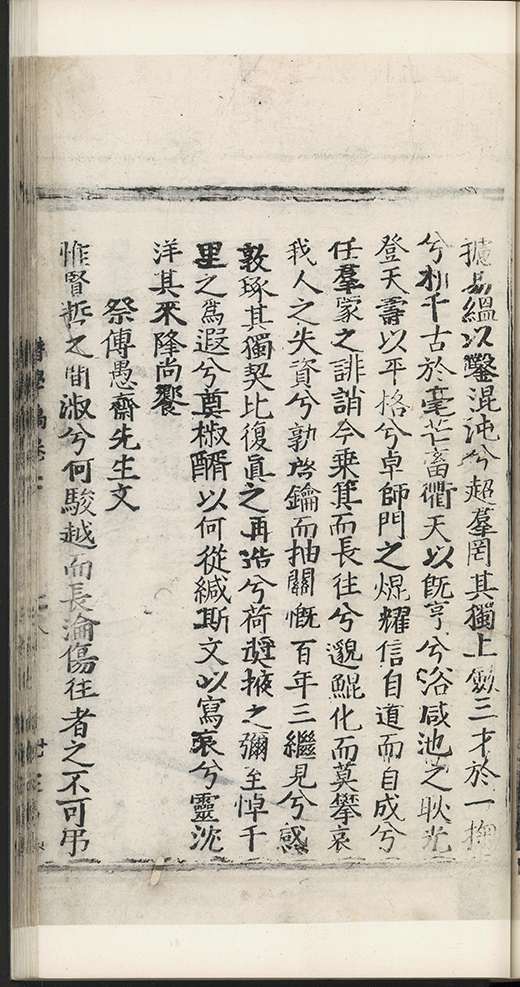 攄易縕以鑿混沌兮超羣罔其獨上斂三才於一掬
兮析千古於毫芒畜衢天以旣亨兮浴咸池之耿光
登天壽以平格兮卓師門之焜耀信自道而自成兮
任羣家之誹誚今乘箕而長往兮邈鯤化而莫攀哀
我人之失資兮孰啓鑰而抽關慨百年三繼見兮感
敦琢其獨契比復眞之再浩兮荷奬掖之彌至悼千
里之爲遐兮奠椒醑以何從緘斯文以寫哀兮靈沈
洋其來降尚饗
祭傅愚齋先生文
惟賢哲之間淑兮何駿越而長淪傷往者之不可弔